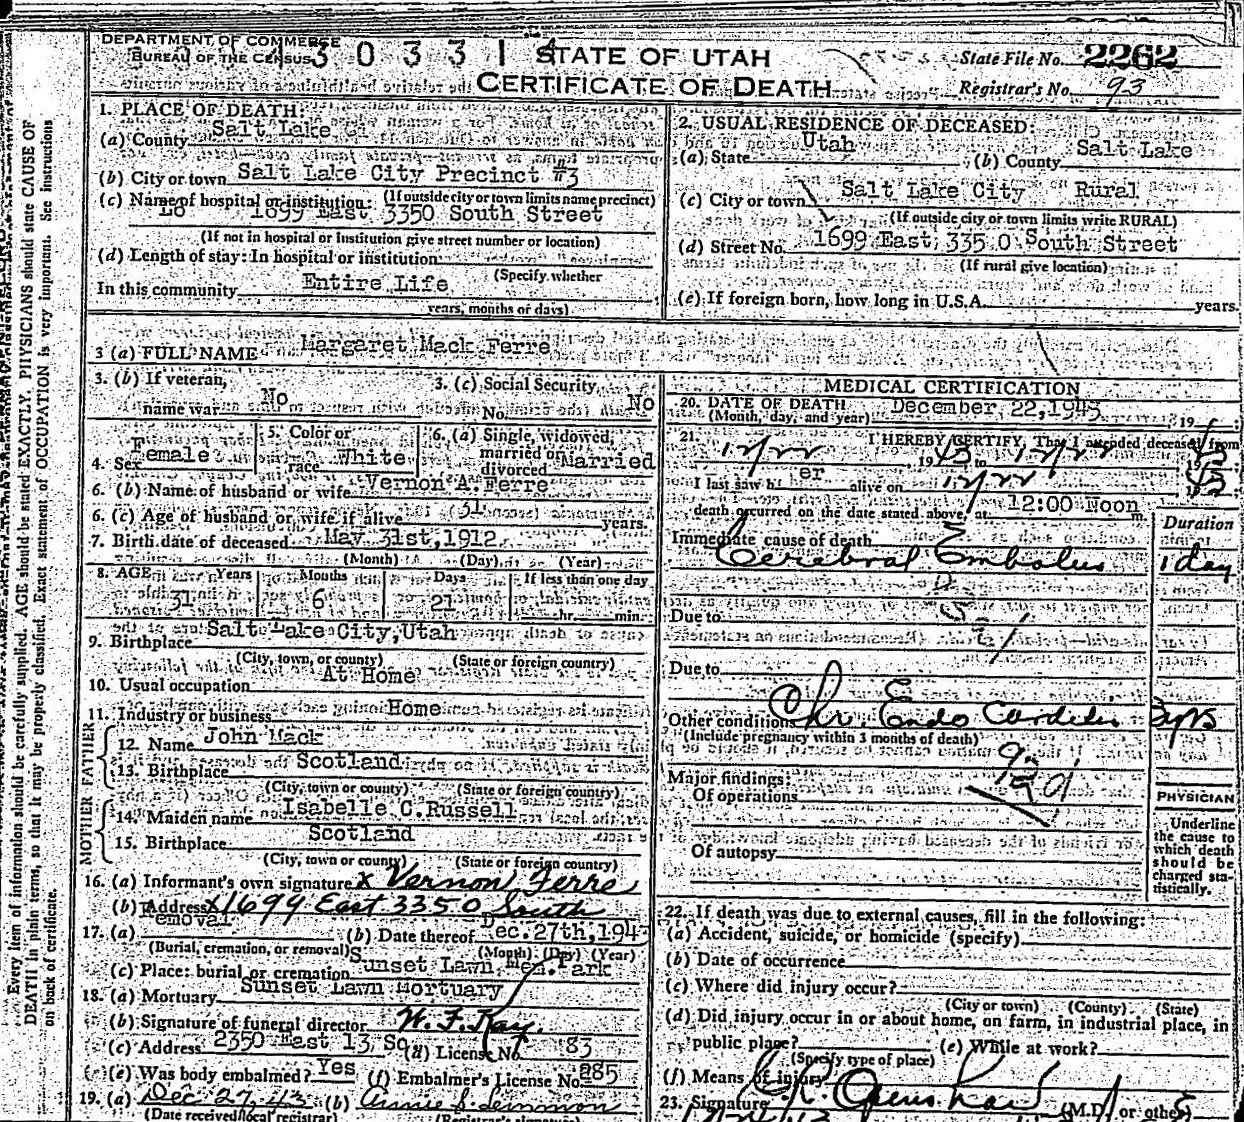 DEPARTMENT OF COMMERCE
BUREAU OF THE CENSUS
3 0 3 3 1
STATE OF UTAH
CERTIFICATE OF DEATH
State File No. 2262
Registrar's No. 93
Every item of information should be carefully supplied. AGE should be stated EXACTLY. PHYSICIANS should state CAUSE OF
DEATH in plain terms, so that it may be properly classified. Exact statement of OCCUPATION is very important. See instructions
on back of certificate.
1. PLACE OF DEATH:
(a) County Salt Lake
(b) City or town Salt Lake City Precinct #3
(c) Name of hospital or institution: (If outside city or town limits name precinct)
1699 East 3350 South Street
(If not in hospital or institution give street number or location)
(d) Length of stay: In hospital or institution
(Specify whether
In this community Entire Life
years, months or days)
2. USUAL RESIDENCE OF DECEASED:
(a) State Utah (b) County Salt Lake
(c) City or town Salt Lake City Rural
(If outside city or town limits write RURAL)
(d) Street No. 1699 East 335 0 South Street
(If rural give location)
(e) If foreign born, how long in U.S.A. years.
3 (a) FULL NAME Margaret Mack Ferre
3. (b) If veteran, name war No
3. (c) Social Security No. No
4. Sex Female
5. Color or race White
6. (a) Single, widowed, married or divorced Married
6. (b) Name of husband or wife Vernon A. Ferre
6. (c) Age of husband or wife if alive 31 years.
7. Birth date of deceased May 31st, 1912
(Month) (Day) (Year)
8. AGE Years Months Days If less than one day
31 6 21 hr. min.
9. Birthplace Salt Lake City, Utah
(City, town, or county) (State or foreign country)
10. Usual occupation At Home
11. Industry or business Home
FATHER
12. Name John Mack
13. Birthplace Scotland
(City, town or county) (State or foreign country)
MOTHER
14. Maiden name Isabelle C. Russell
15. Birthplace Scotland
(City, town or county) (State or foreign country)
16. (a) Informant's own signature x Vernon Ferre
(b) Address x 1699 East 3350 South
17. (a) Removal (b) Date thereof Dec. 27th, 194
(Burial, cremation, or removal) (Month) (Day) (Year)
(c) Place: burial or cremation Sunset Lawn Mem. Park
18. (a) Mortuary Sunset Lawn Mortuary
(b) Signature of funeral director W. F. Kay.
(c) Address 2350 East 13 So (d) License No. 83
(e) Was body embalmed? Yes (f) Embalmer's License No. 285
19. (a) Dec 27, 43 (b) Annie S. Lemmon
(Date received local registrar) (Registrar's signature)
MEDICAL CERTIFICATION
20. DATE OF DEATH December, 22, 1943
(Month, day, and year) 19
21. I HEREBY CERTIFY, That I attended deceased from
12/22, 1943 to 12/22 1943
I last saw her alive on 12/22 1943
death occurred on the date stated above, at 12:00 Noon m.
Duration
Immediate cause of death
Cerebral Embolus 1 day
Due to
Due to
Other conditions Chr. Endo Carditis 3 yrs
(Include pregnancy within 3 months of death)
Major findings:
Of operations
Of autopsy
PHYSICIAN
Underline
the cause to
which death
should be
charged sta-
tistically.
22. If death was due to external causes, fill in the following:
(a) Accident, suicide, or homicide (specify)
(b) Date of occurrence
(c) Where did injury occur?
(City or town) (County) (State)
(d) Did injury occur in or about home, on farm, in industrial place, in
public place? (e) While at work?
(Specify type of place)
(f) Means of injury
23. Signature (M.D. or other)